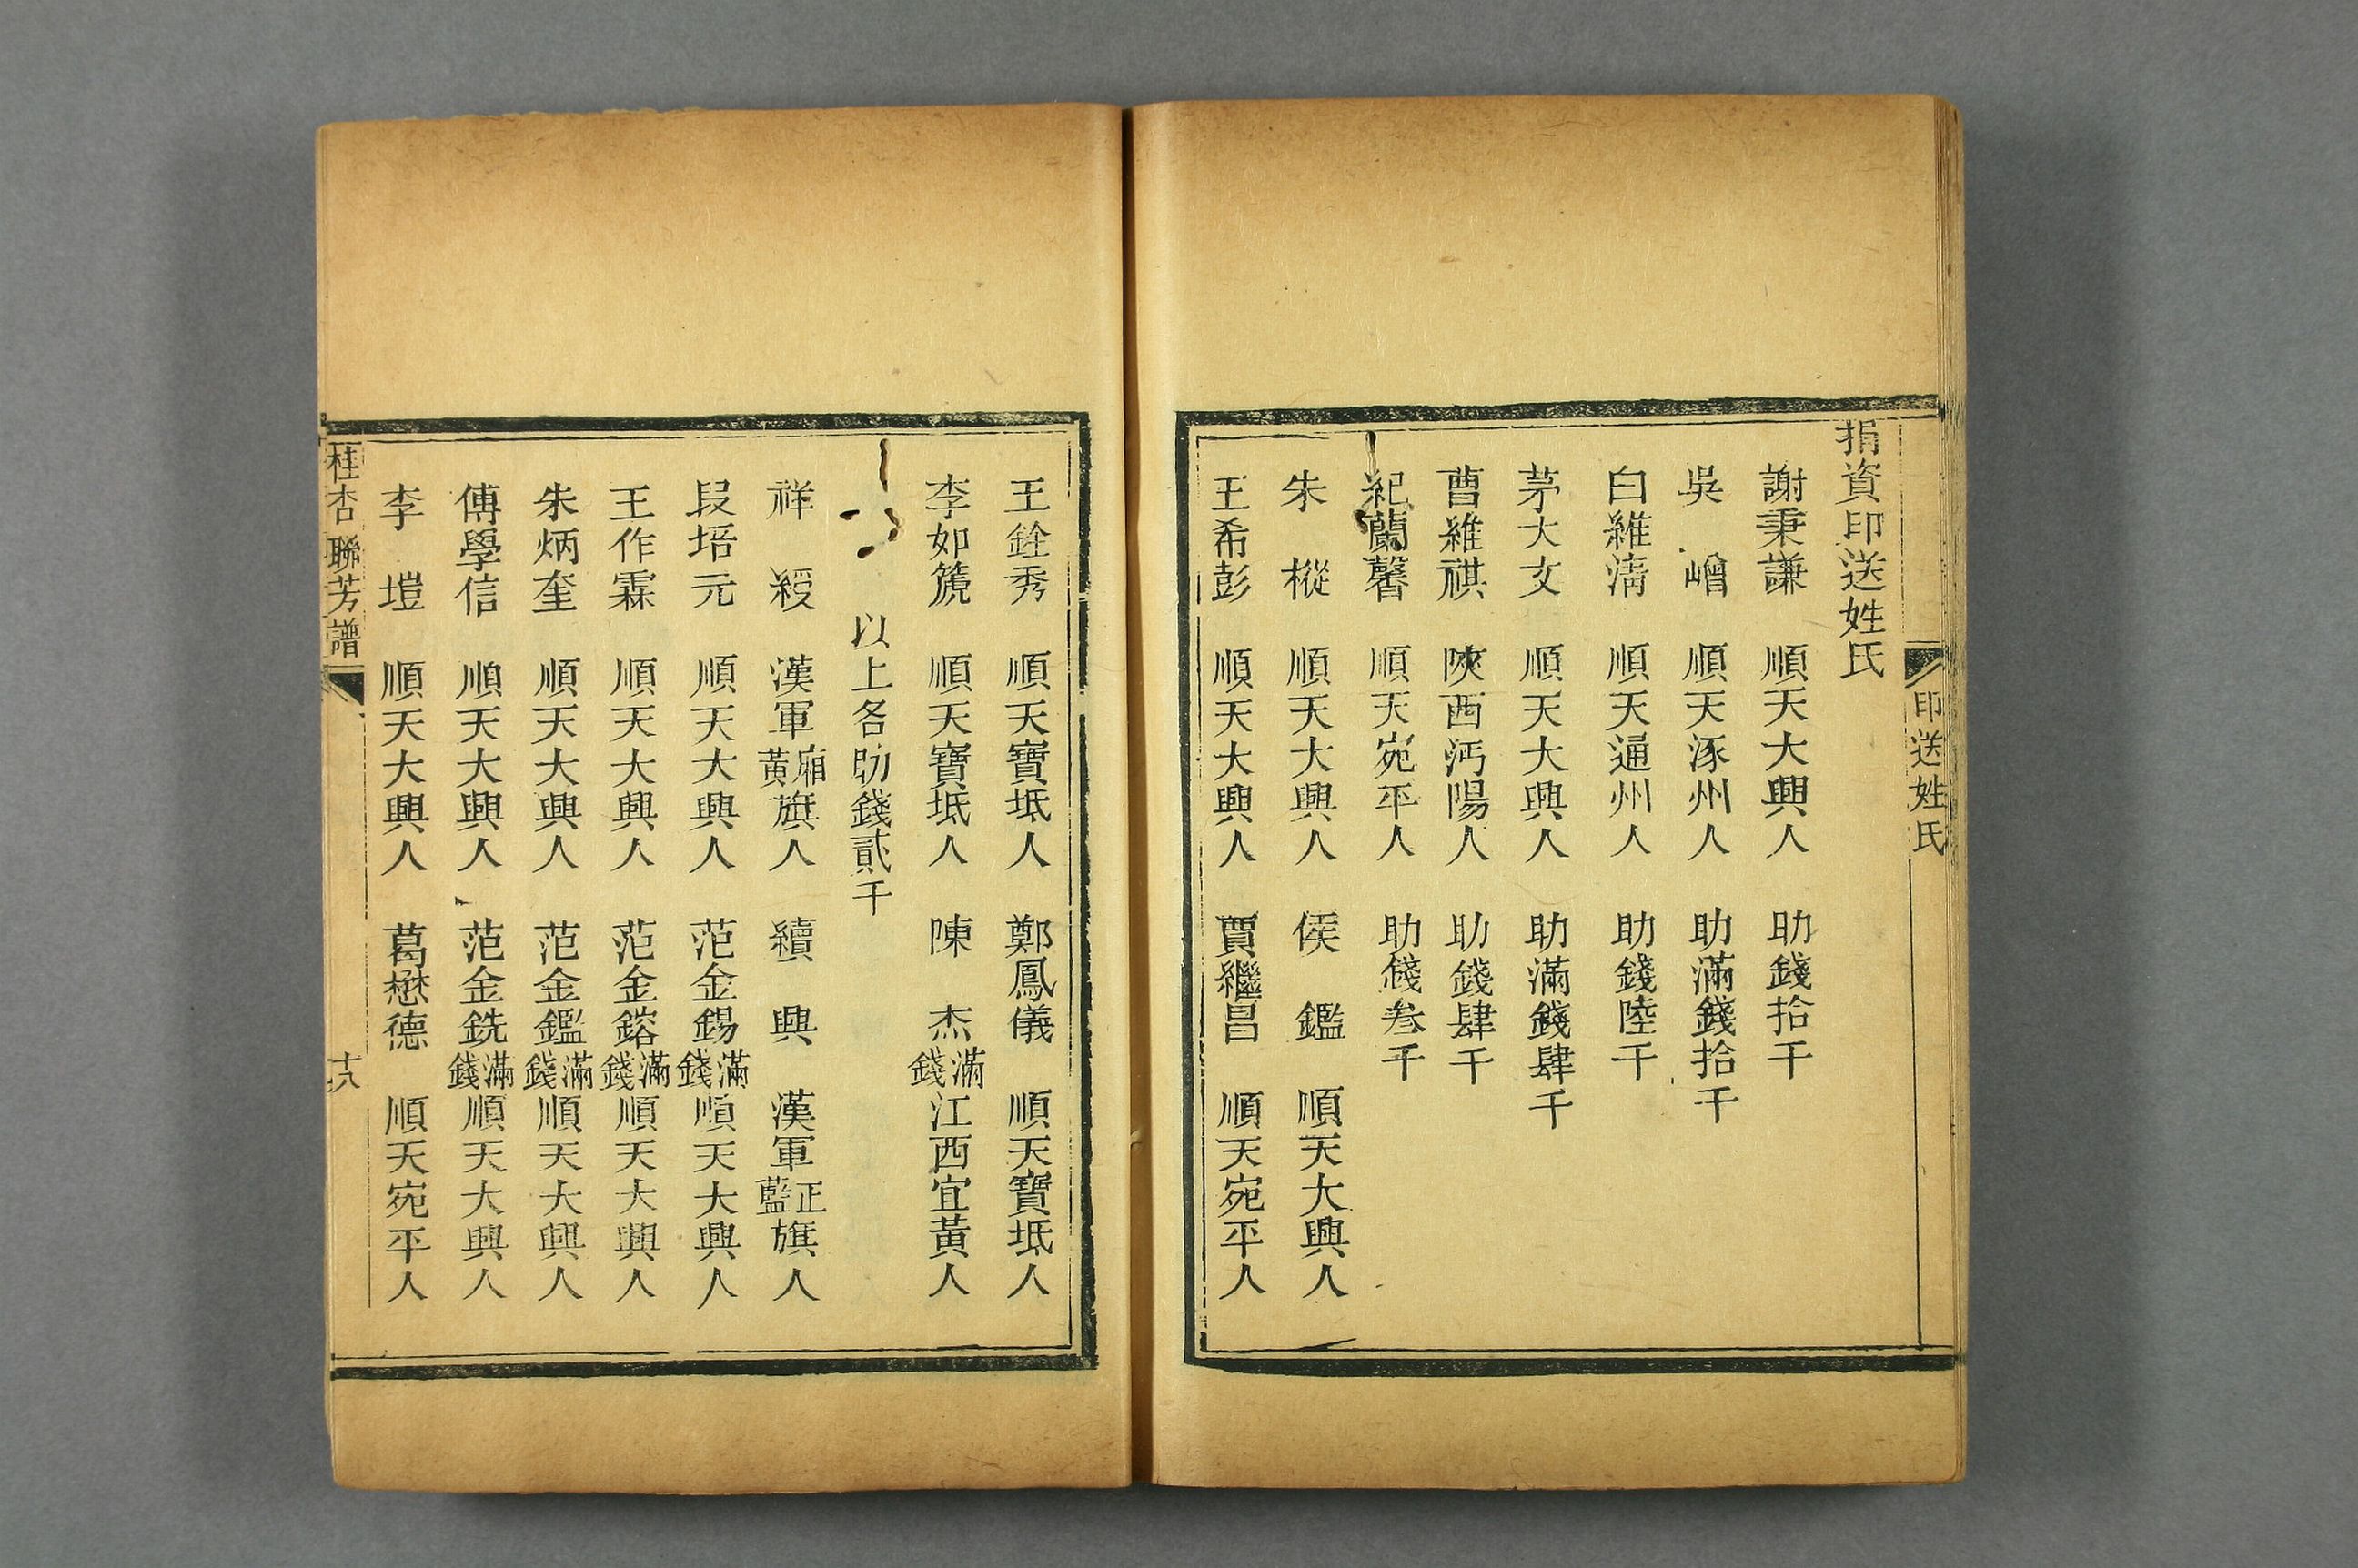 印送姓氏
捐資印送姓氏
謝秉謙 順天大興人 助錢拾千
吳 嶒 順天涿州人 助滿錢拾千
白維清 順天通州人 助錢陸千
茅大文 順天大興人 助滿錢肆千
曹維祺 陝西沔陽人 助錢肆千
紀蘭馨 順天宛平人 助錢叁千
朱 樅 順天大興人 侯 鑑 順天大興人
王希彭 順天大興人 賈繼昌 順天宛平人
王銓秀 順天寶坻人 鄭鳳儀 順天寶坻人
李如篪 順天寶坻人 陳 杰滿錢江西宜黃人
以上各助錢貳千
祥 綬 漢軍廂黃旗人 續 興 漢軍正藍旗人
段培元 順天大興人 范金錫滿錢順天大興人
王作霖 順天大興人 范金鎔滿錢順天大興人
朱炳奎 順天大興人 范金鑑滿錢順天大興人
傅學信 順天大興人 范金銑滿錢順天大興人
李 塏 順天大興人 葛懋德 順天宛平人
桂杏聯芳譜 十八